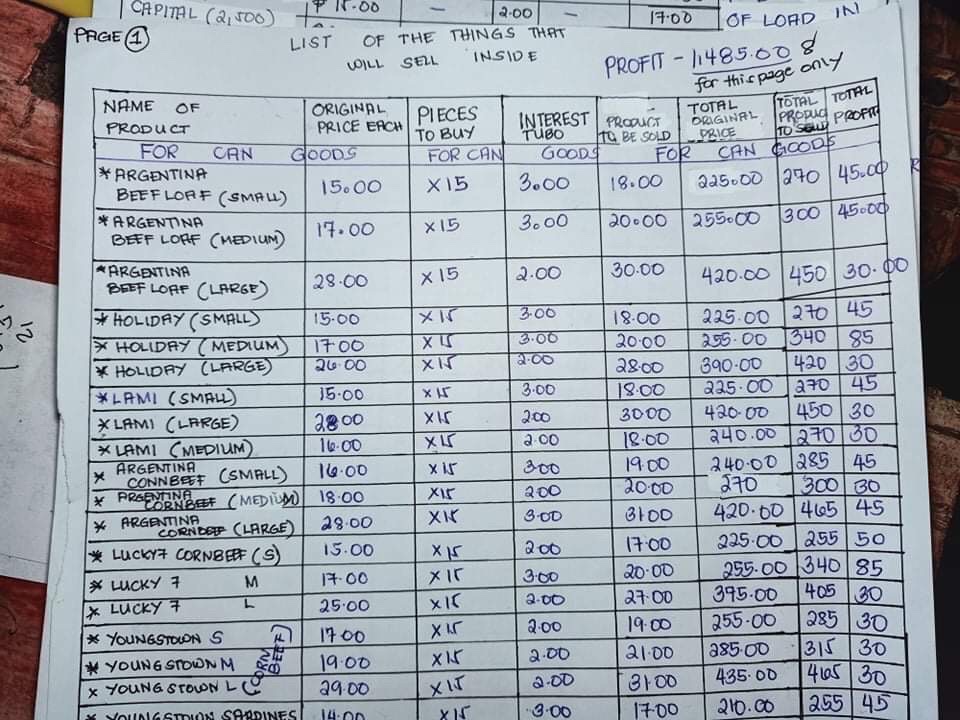 CAPITAL (2,500) ₱ 15.00 – 2.00 – 17.00 OF LOAD IN
PAGE 1
LIST OF THE THINGS THAT
WILL SELL INSIDE
PROFIT - 1,485.00
for this page only
NAME OF PRODUCT ORIGINAL PRICE EACH PIECES TO BUY INTEREST TUBO PRODUCT TO BE SOLD TOTAL ORIGINAL PRICE TOTAL PRODUCT TO SELL TOTAL PROFIT
FOR CAN GOODS FOR CAN GOODS FOR CAN GOODS
* ARGENTINA BEEF LOAF (SMALL) 15.00 x15 3.00 18.00 225.00 270 45.00
* ARGENTINA BEEF LOAF (MEDIUM) 17.00 x15 3.00 20.00 255.00 300 45.00
* ARGENTINA BEEF LOAF (LARGE) 28.00 x15 2.00 30.00 420.00 450 30.00
* HOLIDAY (SMALL) 15.00 x15 3.00 18.00 225.00 270 45
* HOLIDAY (MEDIUM) 17.00 x15 3.00 20.00 255.00 340 85
* HOLIDAY (LARGE) 26.00 x15 2.00 28.00 390.00 420 30
* LAMI (SMALL) 15.00 x15 3.00 18.00 225.00 270 45
* LAMI (LARGE) 28.00 x15 2.00 30.00 420.00 450 30
* LAMI (MEDIUM) 16.00 x15 2.00 18.00 240.00 270 30
* ARGENTINA CONNBEEF (SMALL) 16.00 x15 3.00 19.00 240.00 285 45
* ARGENTINA CORNBEEF (MEDIUM) 18.00 x15 2.00 20.00 270 300 30
* ARGENTINA CORNBEEF (LARGE) 28.00 x15 3.00 31.00 420.00 465 45
* LUCKY7 CORNBEEF (S) 15.00 x15 2.00 17.00 225.00 255 50
* LUCKY 7 M 17.00 x15 3.00 20.00 255.00 340 85
* LUCKY 7 L 25.00 x15 2.00 27.00 375.00 405 30
* YOUNGSTOWN S 17.00 x15 2.00 19.00 255.00 285 30
* YOUNGSTOWN M 19.00 x15 2.00 21.00 285.00 315 30
x YOUNGSTOWN L (CORN BEEF) 29.00 x15 2.00 31.00 435.00 465 30
* YOUNGSTOWN SARDINES 14.00 x15 3.00 17.00 210.00 255 45